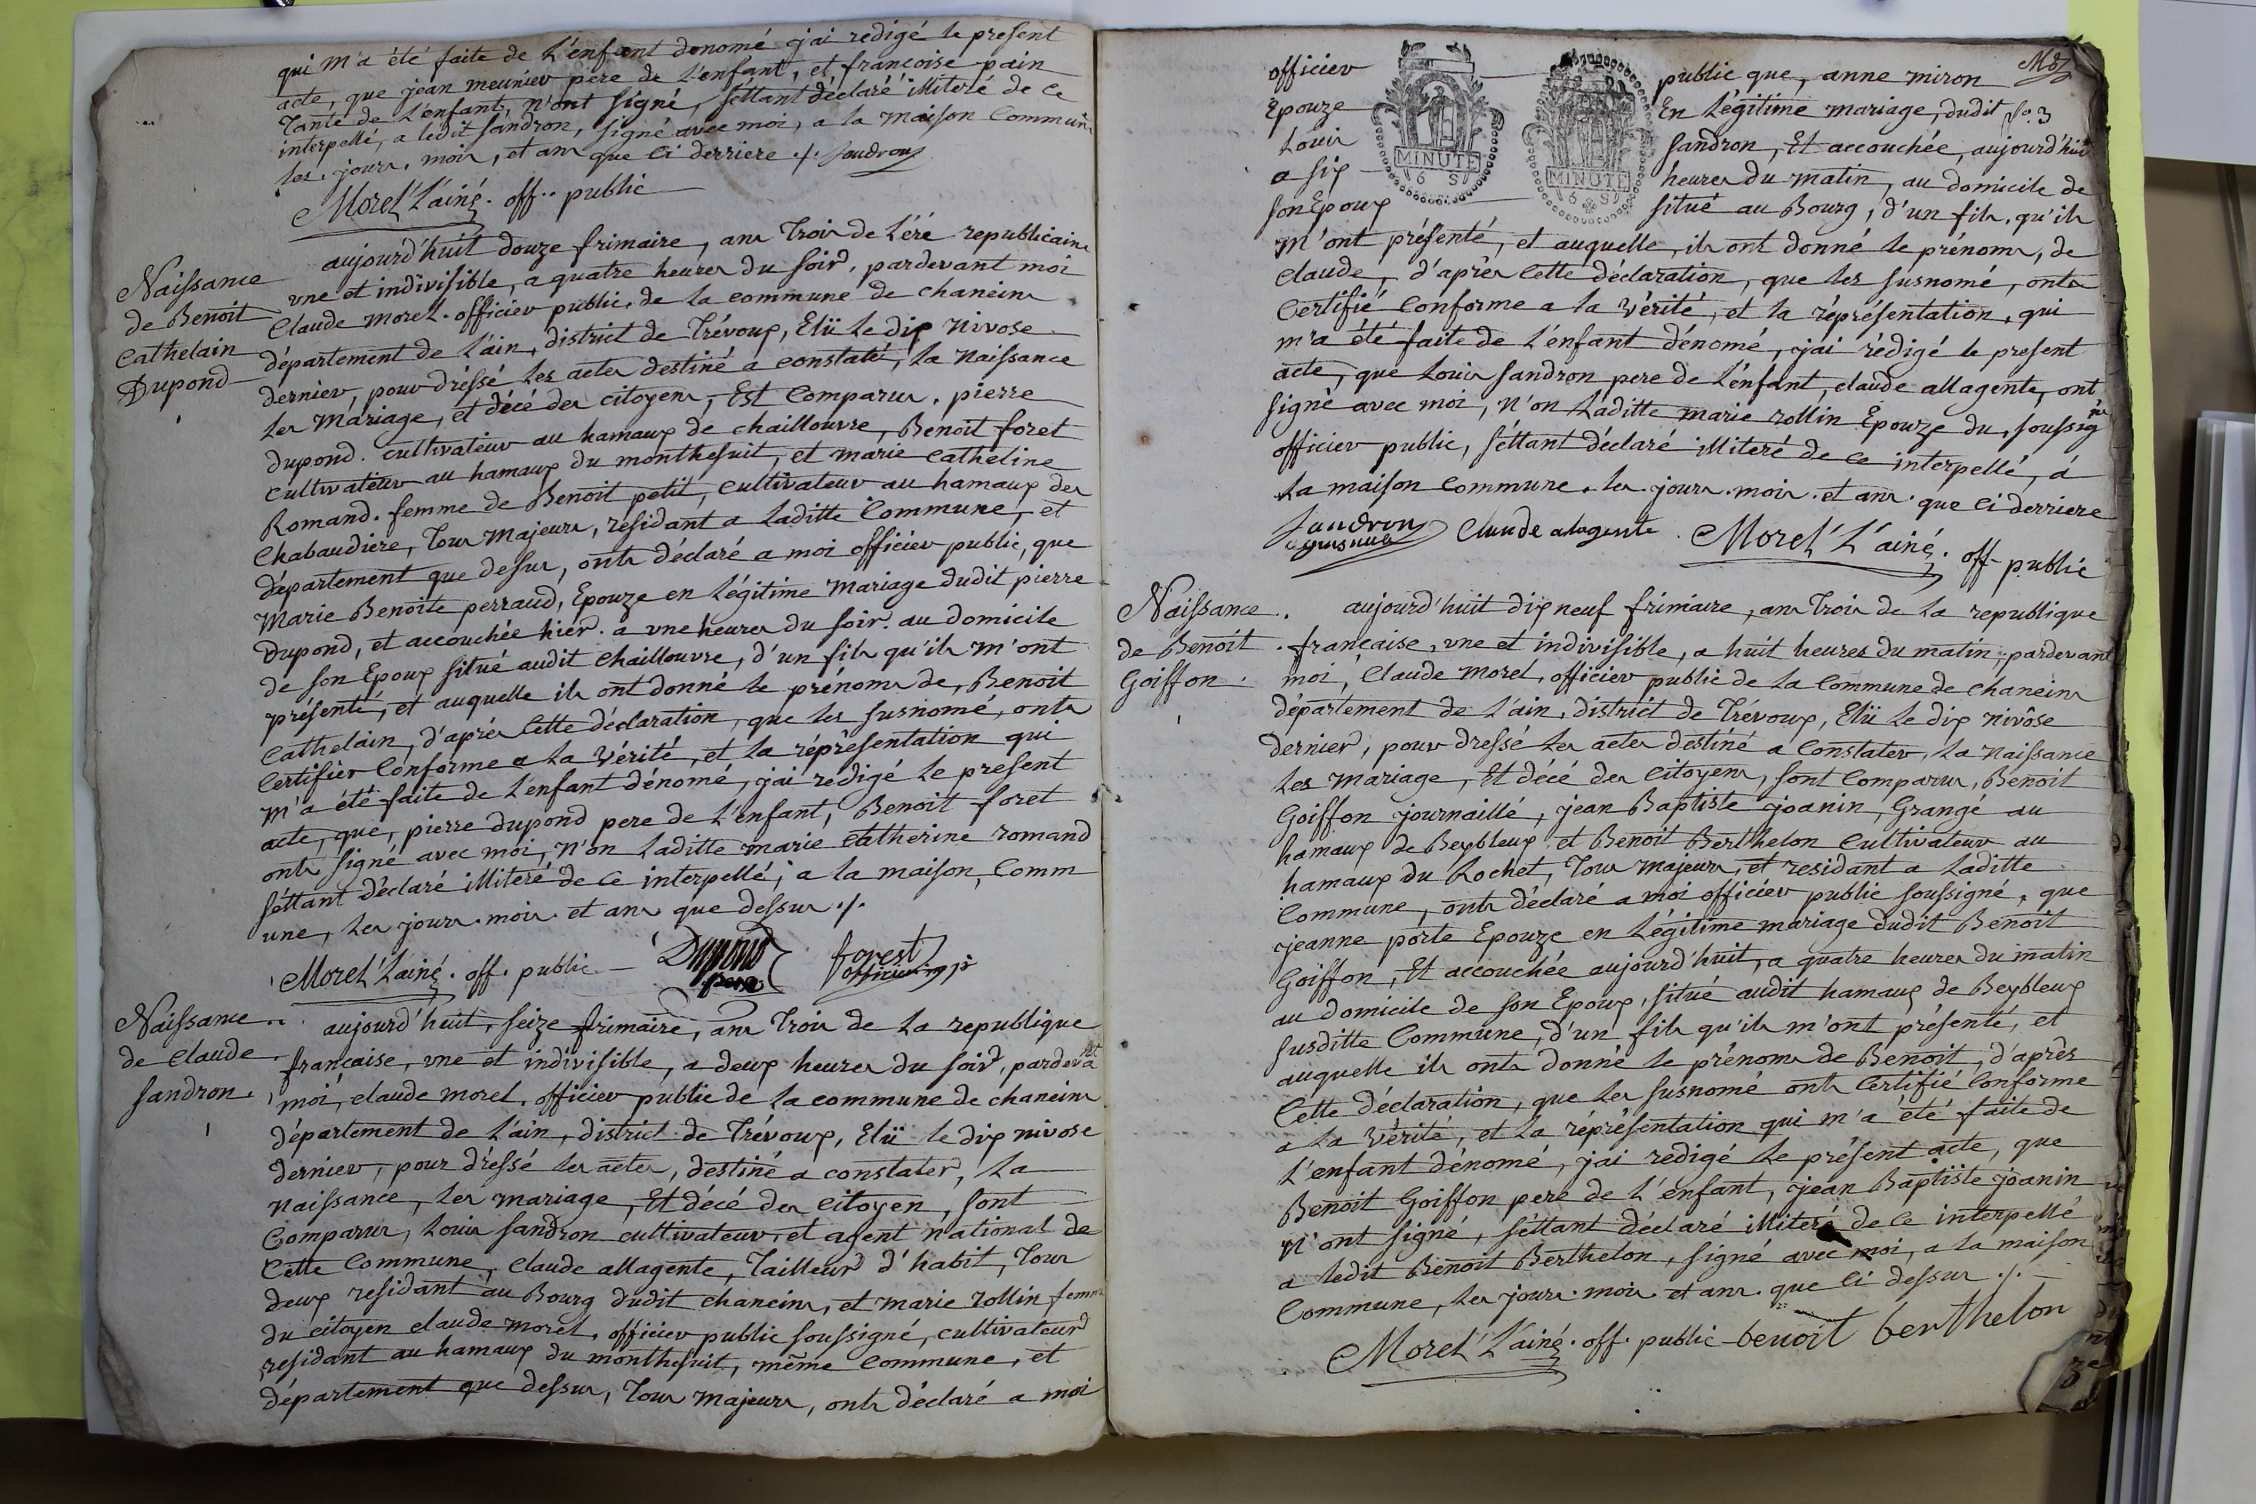 qui m'a été faite de L'enfant denomé j'ai redigé le present
acte, que jean meunier pere de L'enfant, et francoise pain
Tante de L'enfant, n'ont signé, séttant déclaré illiteré de ce
interpellé, a ledit sandron, signé avec moi, a la maison Commune
les, jours, mois, et ans que ci derriere ./. Sandron
Morel L'ainé. off.. public
Naissance
de Benoit
Cathelain
Dupond
aujourd'huit douze frimaire, ans Trois de L'éré republicaine
une et indivisible, a quatre heures du soird, pardevant moi
Claude morel. officier public, de la commune de chaneins
département de L'ain, district de Trévoux, Elü Le dix Nivose
dernier, pour dréssé les actes destiné a constaté, la Naissance
Les Mariage, et décé des citoyens, Est Comparus, pierre
Dupond. cultivateur au hamaux de chaillouvre, Benoit foret
cultivateur au hamaux du monthesuit, et marie catheline
Romand. femme de Benoit petit, cultivateur au hamaux des
Chabaudiere, Tous Majeurs, residant a Laditte Commune, et
département que desus, onts déclaré a moi officier public, que
Marie Benoite perraud, Epouze en Légitime Mariage dudit pierre
Dupond, et accouchée hier. a une heures du soir. au domicile
de son Epoux situé audit Chaillouvre, d'un fils qu'ils m'ont
présenté, et auquelle ils ont donné le prénoms de, Benoit
Cathelain, d'aprés Cette déclaration, que les susnomé, onts
Certifier Conforme a La Vérité, et la réprésentation qui
m'a été faite de L'enfant dénomé, j'ai rédigé le present
acte, que, pierre dupond pere de L'enfant, Benoit foret
onts signé avec moi, n'on Laditte marie Catherine romand
séttant déclaré illiteré de ce interpellé, a la maison, Comm
une, Les jours. mois. et ans que dessus ./.
Morel L'ainé. off. public Dupond pere forest officier mp
Naissance
de Claude
sandron.
aujourd'huit, seize frimaire, ans Trois de La republique
francaise, une et indivisible, a deux heures du soird, pardevant
moi, claude morel, officier public de La commune de chaneins
département de L'ain, district de Trévoux, Elü le dix nivose
dernier, pour dréssé les actes, destiné a constater, La
naissance, Les mariage, Et décé des Citoyen, sont
Comparus, Louis sandron cultivateur, et agent national de
Cette Commune, Claude allagente, Tailleurd d'habit, Tous
deux residant au Bourg dudit chaneins, et marie rollin femme
du citoyen claude morel, officier public soussigné, cultivateurd
residant au hamaux du monthesuit, même Commune, et
département que dessus, Tous Majeurs, onts déclaré a moi
Mds
officier public que, anne miron
Epouze En Légitime mariage, dudit fo. 3
Louis sandron, Et accouchée, aujourd'huit
a six heures du matin, au domicile de
son Epoux situé au Bourg, d'un fils, qu'ils
MINUTE 6 S
MINUTE 6 S
m'ont présenté, et auquelle, ils ont donné le prénoms, de
Claude, d'aprés Cette déclaration, que les susnomé, onts
Certifié Conforme a la Vérité, et la réprésentation, qui
m'a été faite de L'enfant dénomé, j'ai rédigé le present
acte, que Louis sandron pere de L'enfant, claude allagente, ont
signé avec moi, n'on Laditte marie rollin Epouze du, soussigné
officier public, séttant déclaré illiteré de ce interpellé, á
La maison Commune. les. jours. mois. et ans. que ci derriere
Sandron Claude alagente. Morel L'ainé. off public
Naissance.
de Benoit.
Goiffon.
aujourd'huit dix neuf frimaire, ans Trois de La republique
française, une et indivisible, a huit heures du matin, pardevant
moi, Claude Morel, officier public de La Commune de Chaneins
département de L'ain, district de Trévoux, Elü Le dix nivôse
dernier, pour dressé Les actes destiné a Constater, La naissance
Les mariage, Et décé des Citoyens, sont Comparus, Benoit
Goiffon journaillé, jean Baptiste joanin, Grangé au
hamaux de Beybleux, et Benoit Berthelon Cultivateur au
hamaux du Rochet, Tous majeurs, et residant a Laditte
Commune, onts déclaré a moi officier public soussigné, que
jeanne porte Epouze en Légitime mariage dudit Benoit
Goiffon, Et accouchée aujourd'huit, a quatre heures du matin
au domicile de son Epoux, situé audit hamaux de Beybleux
susditte Commune, d'un fils qu'ils m'ont présenté, et
auquelle ils onts donné le prénoms de Benoit, d'après
Cette déclaration, que Les susnomé onts Certifié Conforme
a La Vérité, et La réprésentation qui m'a été faite de
L'enfant dénomé, j'ai rédigé Le présent acte, que
Benoit Goiffon pere de L'enfant, jean Baptiste joanin
n'ont signé, séttant déclaré illiteré de ce interpellé
a ledit Benoit Berthelon, signé avec moi, a la maison
Commune, Les jours. mois. et ans. que Ci dessus ./.
Morel L'ainé. off. public benoit berthelon